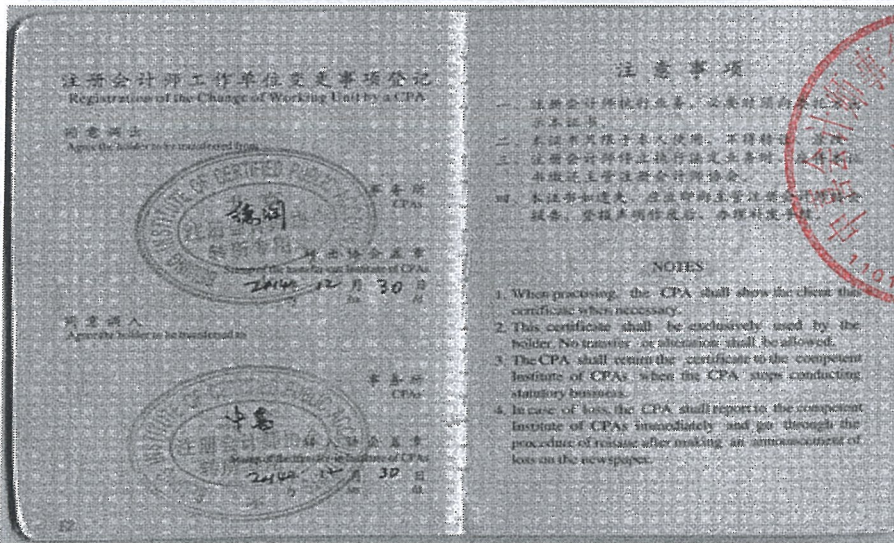 注册会计师工作单位变更事项登记
Registration of the Change of Working Unit by a CPA
同意调出
Agree the holder to be transferred from
事务所
CPAs
转所专用
转出协会盖章
Stamp of the transfer-out Institute of CPAs
2014年 12月 30日
同意调入
Agree the holder to be transferred to
事务所
CPAs
转入协会盖章
Stamp of the transfer-in Institute of CPAs
2014年 12月 30日
12
注意事项
一、注册会计师执行业务，必要时须向委托方出
示本证书。
二、本证书只限于本人使用，不得转让、涂改。
三、注册会计师停止执行法定业务时，应将本证
书缴还主管注册会计师协会。
四、本证书如遗失，应立即向主管注册会计师协会
报告，登报声明作废后，办理补发手续。
NOTES
1. When practising, the CPA shall show the client this
certificate when necessary.
2. This certificate shall be exclusively used by the
holder. No transfer or alteration shall be allowed.
3. The CPA shall return the certificate to the competent
Institute of CPAs when the CPA stops conducting
statutory business.
4. In case of loss, the CPA shall report to the competent
Institute of CPAs immediately and go through the
procedure of reissue after making an announcement of
loss on the newspaper.